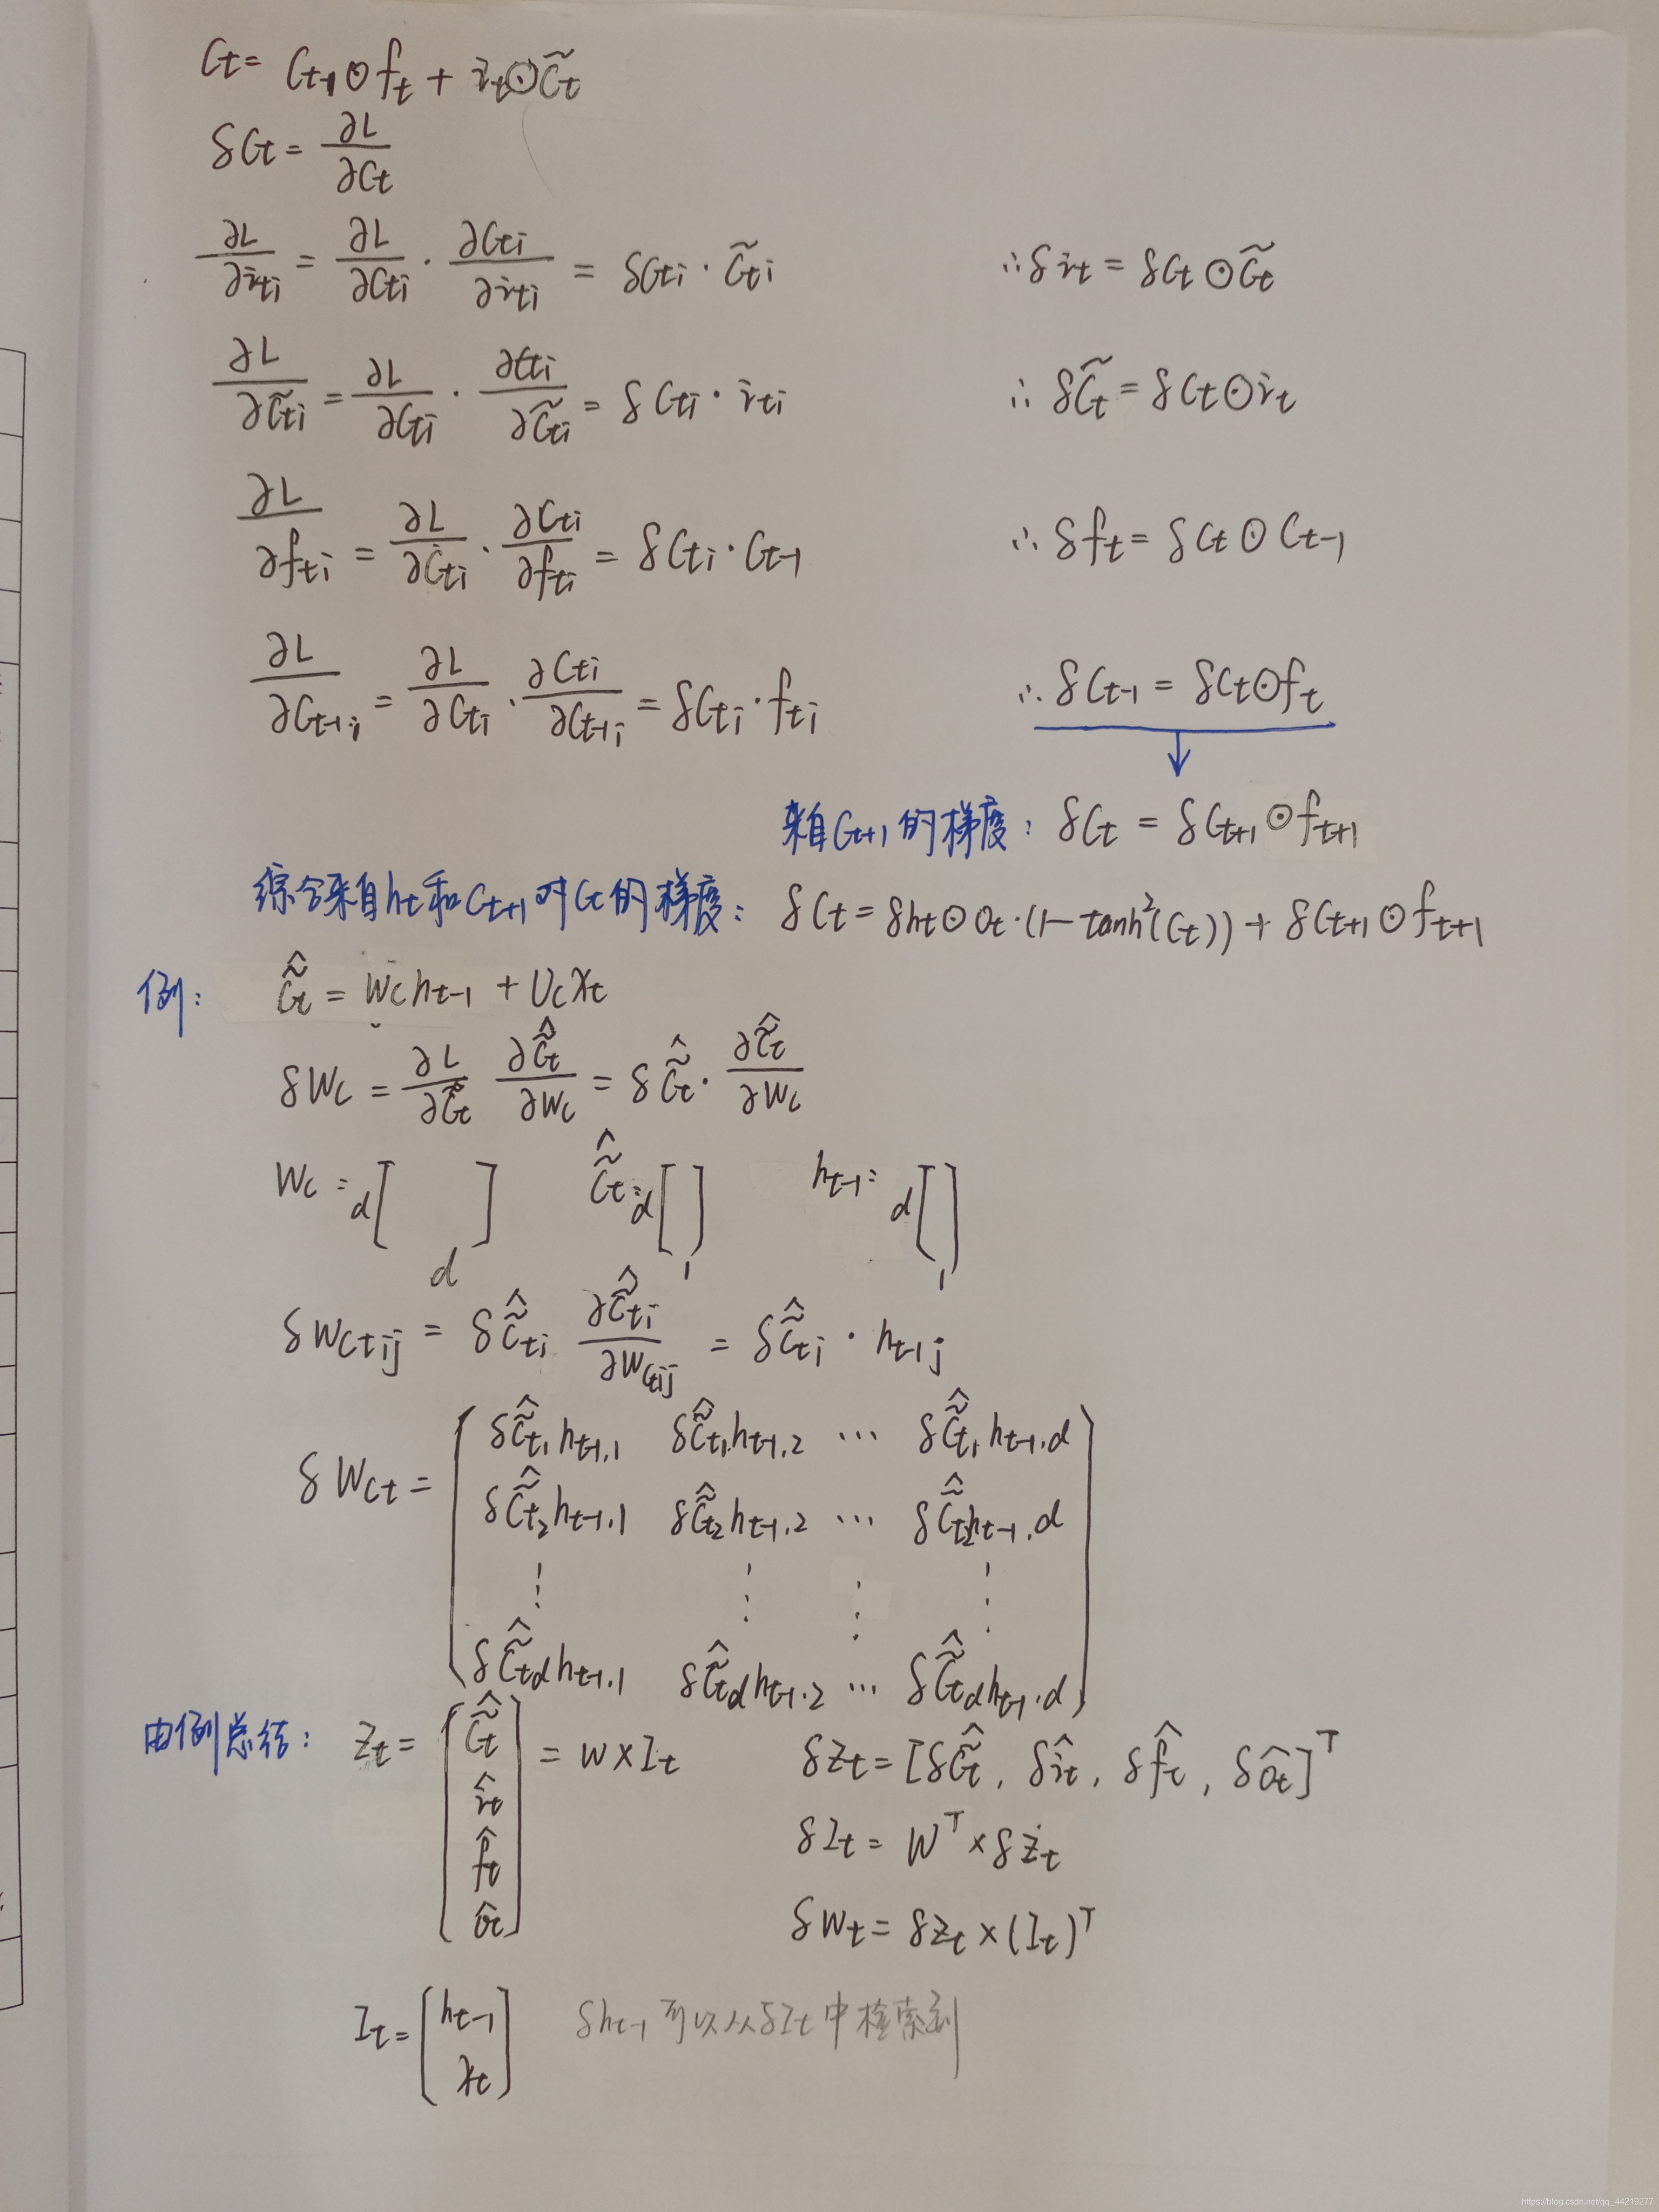 Ct = Ct-1 ⊙ ft + it ⊙ C̃t
δCt = ∂L/∂Ct
∂L/∂iti = ∂L/∂Cti · ∂Cti/∂iti = δCti · C̃ti ∴ δit = δCt ⊙ C̃t
∂L/∂C̃ti = ∂L/∂Cti · ∂Cti/∂C̃ti = δCti · iti ∴ δC̃t = δCt ⊙ it
∂L/∂fti = ∂L/∂Cti · ∂Cti/∂fti = δCti · Ct-1 ∴ δft = δCt ⊙ Ct-1
∂L/∂Ct-1,i = ∂L/∂Cti · ∂Cti/∂Ct-1i = δCti · fti ∴ δCt-1 = δCt ⊙ ft
↓
来自Ct+1的梯度: δCt = δCt+1 ⊙ ft+1
综合来自ht和Ct+1对Ct的梯度: δCt = δht ⊙ Ot · (1 - tanh²(Ct)) + δCt+1 ⊙ ft+1
例: C̃̂t = Wcht-1 + Ucxt
δWc = ∂L/∂C̃̂t ∂C̃̂t/∂Wc = δC̃̂t · ∂C̃̂t/∂Wc
Wc = d[ ]d C̃̂t = d[ ]1 ht-1 = d[ ]1
δWctij = δC̃̂ti ∂C̃̂ti/∂Wctij = δC̃̂ti · ht-1j
δWct = [ δC̃̂t1 ht-1,1 δC̃̂t1 ht-1,2 ⋯ δC̃̂t1 ht-1,d
δC̃̂t2 ht-1,1 δC̃̂t2 ht-1,2 ⋯ δC̃̂t2 ht-1,d
⋮ ⋮ ⋮ ⋮
δC̃̂td ht-1,1 δC̃̂td ht-1,2 ⋯ δC̃̂td ht-1,d ]
由例总结: Zt = [ C̃̂tît f̂t Ôt ] = W × It δZt = [δC̃̂t, δît, δf̂t, δÔt]ᵀ
δIt = Wᵀ × δZt
δWt = δZt × (It)ᵀ
It = [ ht-1 xt ] δht-1 可以从δIt中检索到
https://blog.csdn.net/qq_44219277